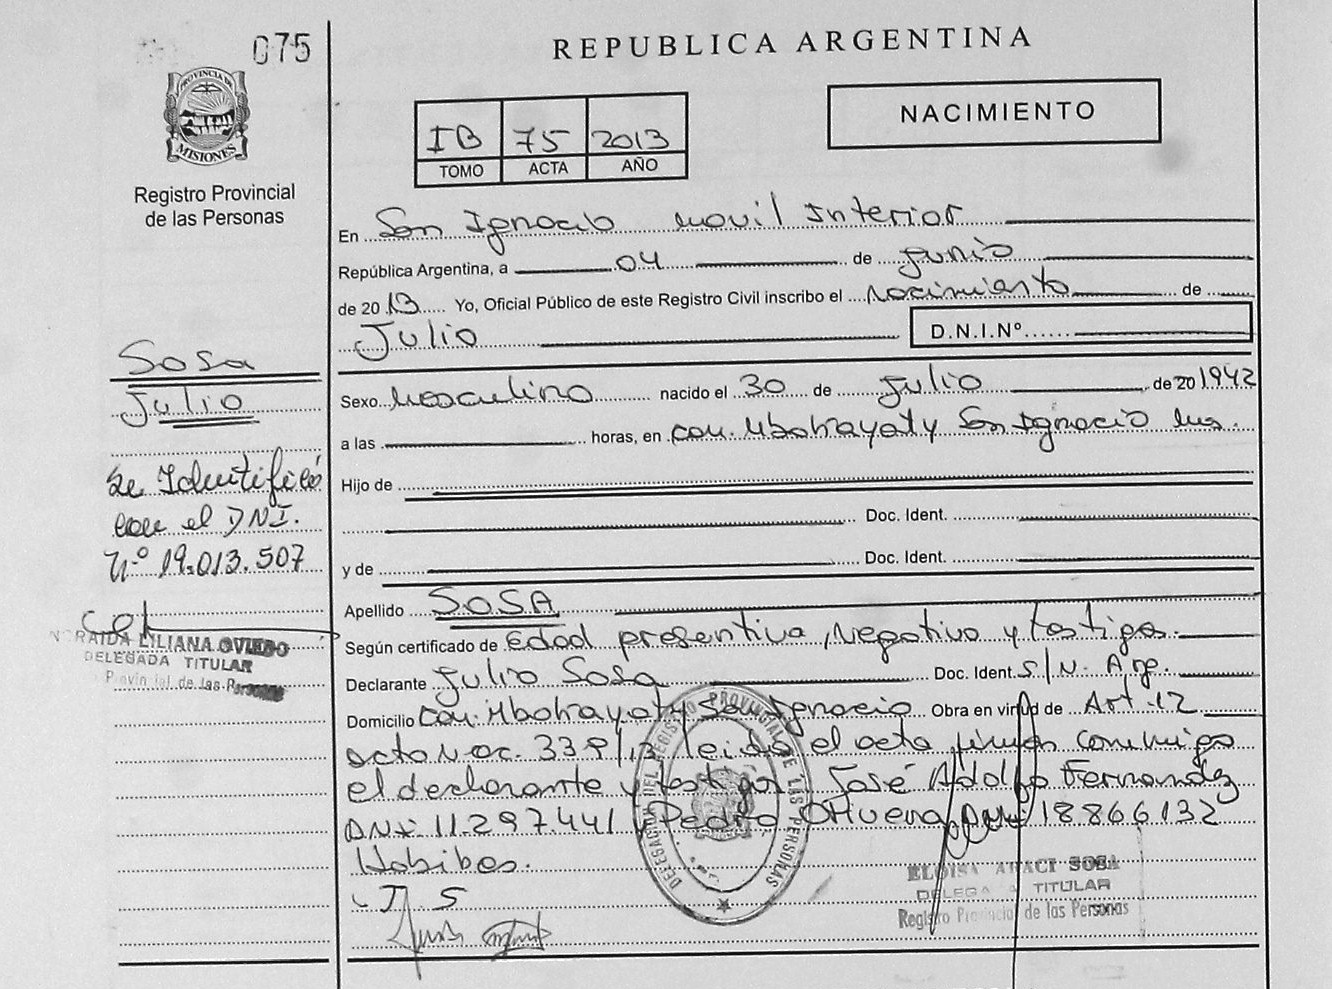 075
REPUBLICA ARGENTINA
PROVINCIA DE
MISIONES
Registro Provincial
de las Personas
IB 75 2013
TOMO ACTA AÑO
NACIMIENTO
En San Ignacio Movil Interior
República Argentina, a 04 de junio
de 2013 Yo, Oficial Público de este Registro Civil inscribo el Nacimiento de
Julio D.N.I.Nº
Sexo Masculino nacido el 30 de Julio de 201942
a las horas, en Com. Mbokayaty San Ignacio Mns.
Hijo de
Doc. Ident.
y de Doc. Ident.
Apellido SOSA
Según certificado de edad presentiva, Negativo y testigo.
Declarante Julio Sosa Doc. Ident. S/N. Arg.
Domicilio Com. Mbokayaty San Ignacio Obra en virtud de Art. 12
acto N 339/13 leida el acta firman conmigo
el declarante y testigos José Adolfo Fernandez
DNI 11.297.441, Pedro DNI 18866132
Habiles.
J. S
Sosa
Julio
Se Identificó
con el DNI.
Nº 19.013.507
LILIANA OVIEDO
DELEGADA TITULAR
Provincial de las Personas
DELEGACIA DEL REGISTRO PROVINCIAL DE LAS PERSONAS
ELOISA SOSA
DELEGADA TITULAR
Registro Provincial de las Personas